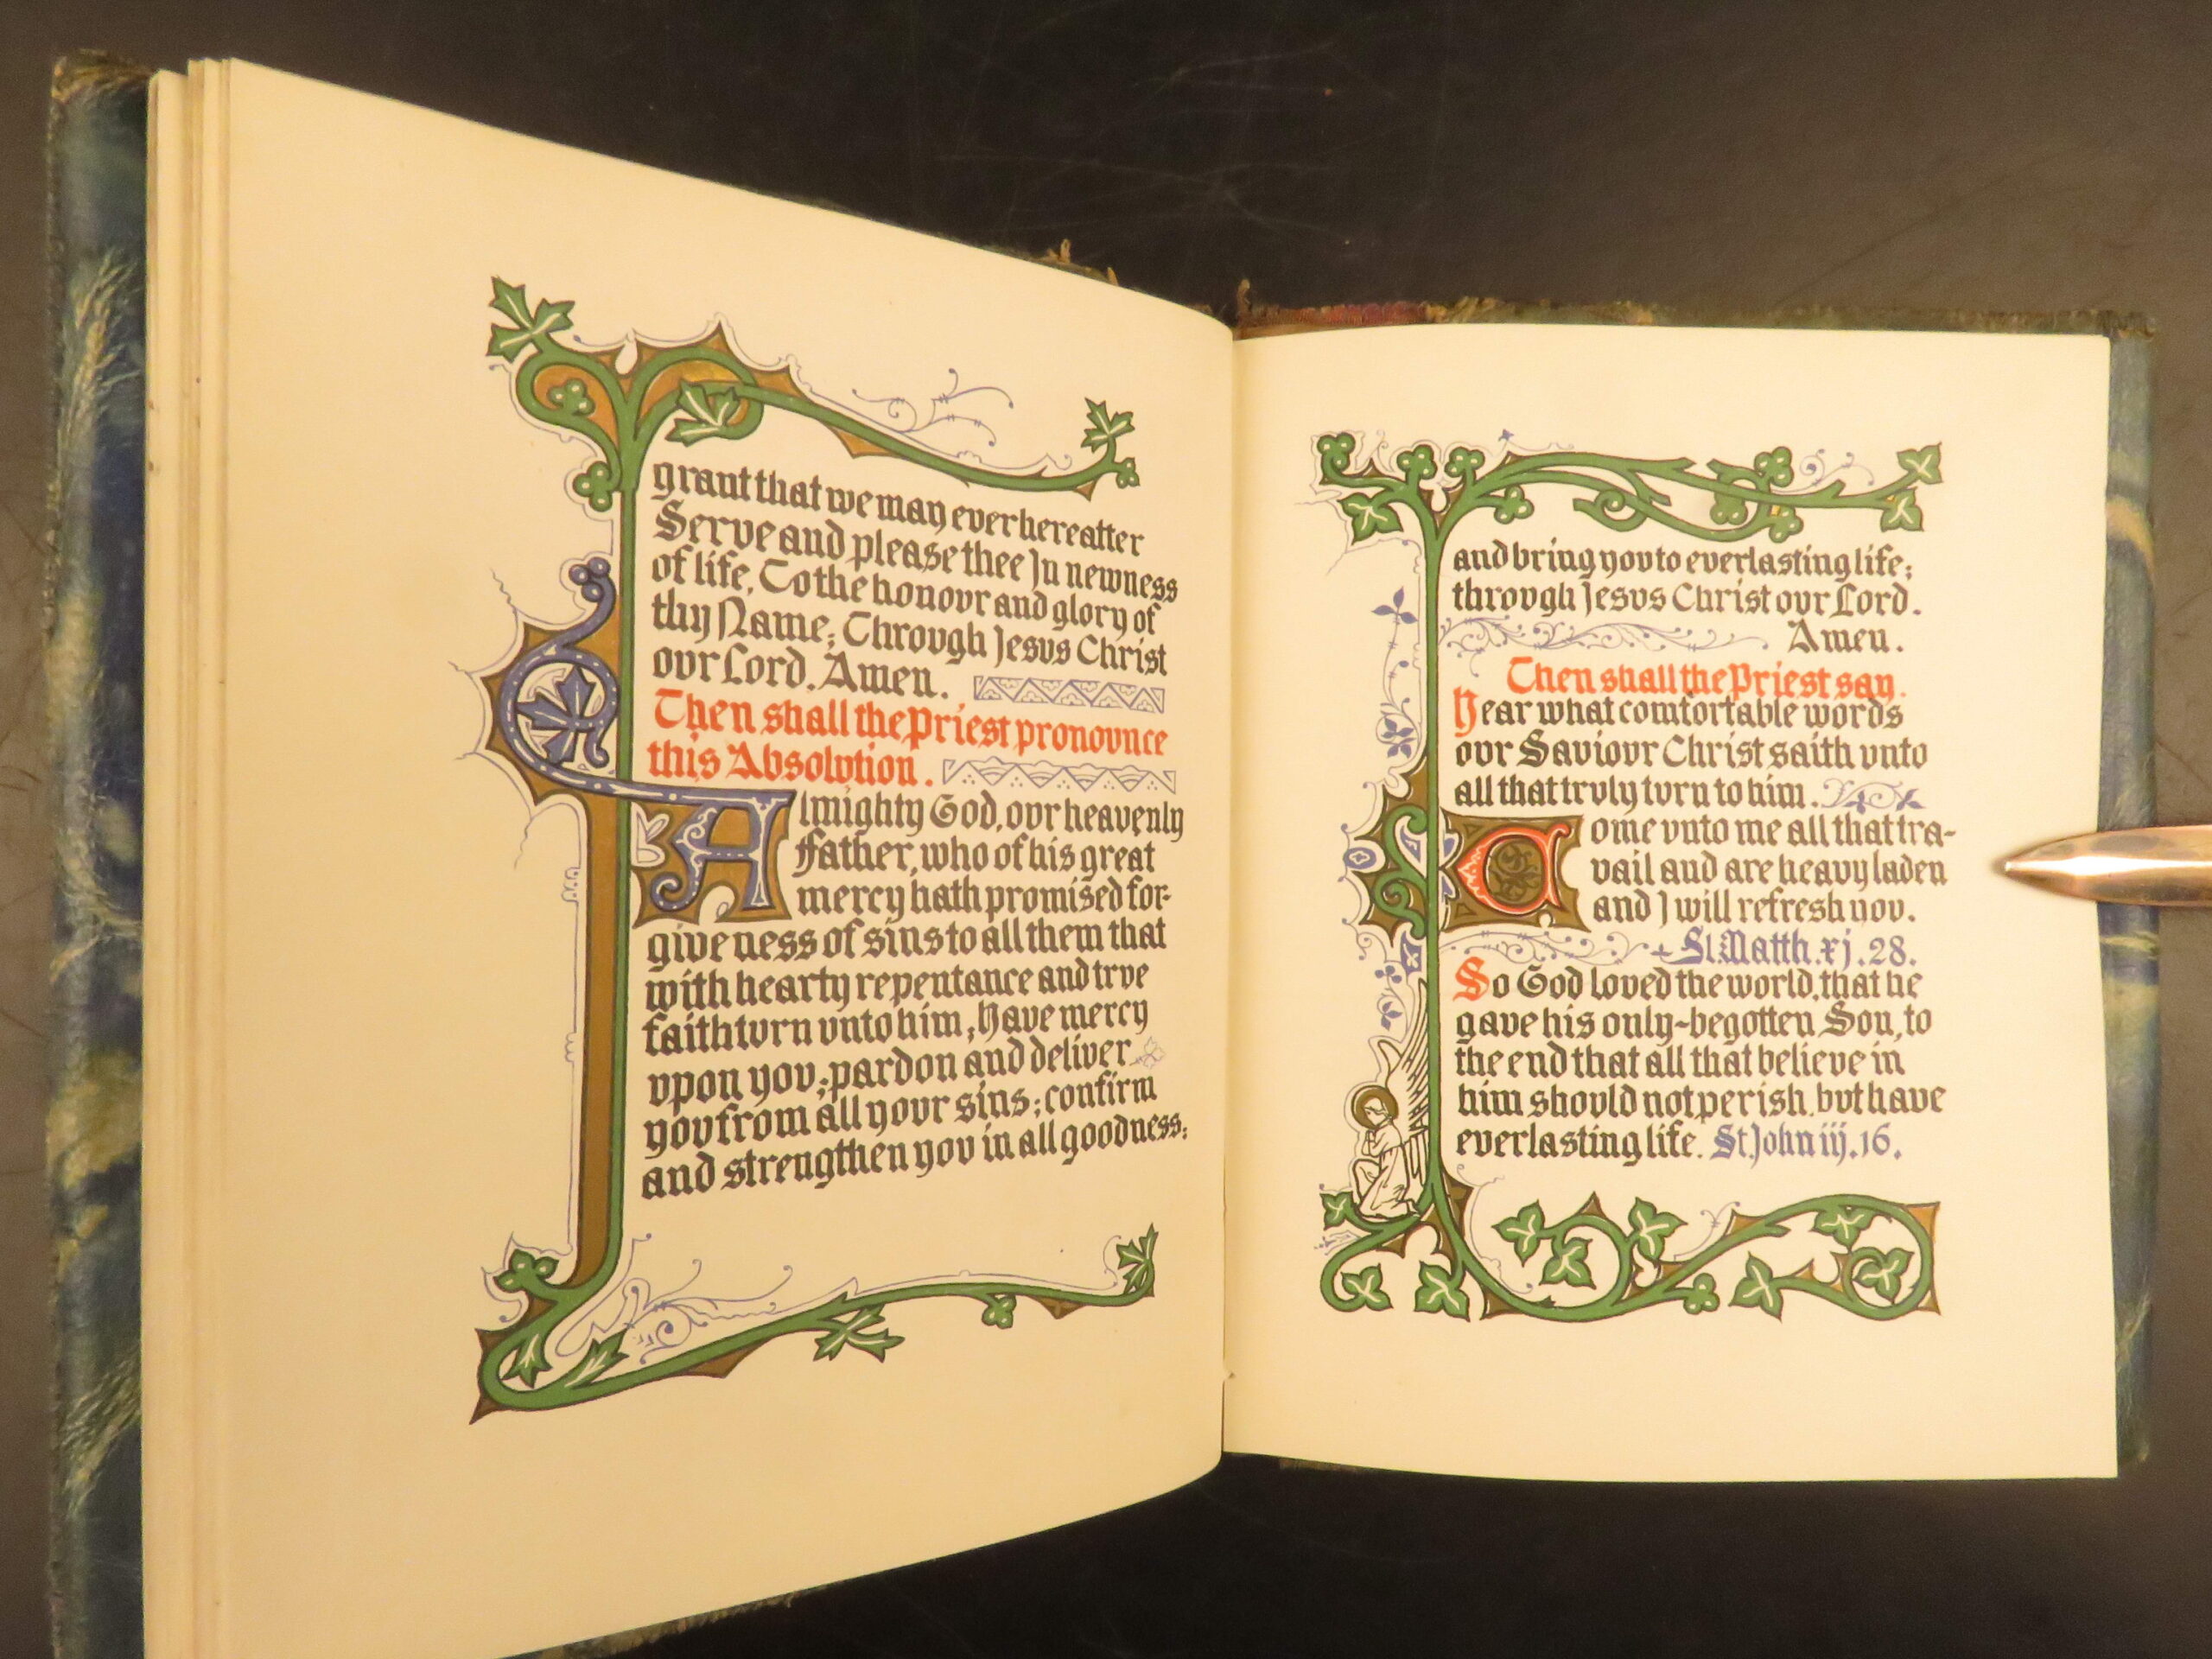 grant that we may ever hereafter
Serve and please thee In newness
of life, To the honovr and glory of
thy Name; Throvgh Jesvs Christ
ovr Lord. Amen.
Then shall the Priest pronovnce
this Absolvtion.
Almighty God, ovr heavenly
Father, who of his great
mercy hath promised for-
giveness of sins to all them that
with hearty repentance and trve
faith tvrn vnto him; Have mercy
vpon yov; pardon and deliver
yov from all yovr sins; confirm
and strengthen yov in all goodness;
and bring yov to everlasting life;
throvgh Jesvs Christ ovr Lord.
Amen.
Then shall the Priest say.
Hear what comfortable words
ovr Saviovr Christ saith vnto
all that trvly tvrn to him.
Come vnto me all that tra-
vail and are heavy laden
and I will refresh yov.
St. Matth. xj. 28.
So God loved the world, that he
gave his only-begotten Son, to
the end that all that believe in
him shovld not perish, bvt have
everlasting life. St. John iij. 16.